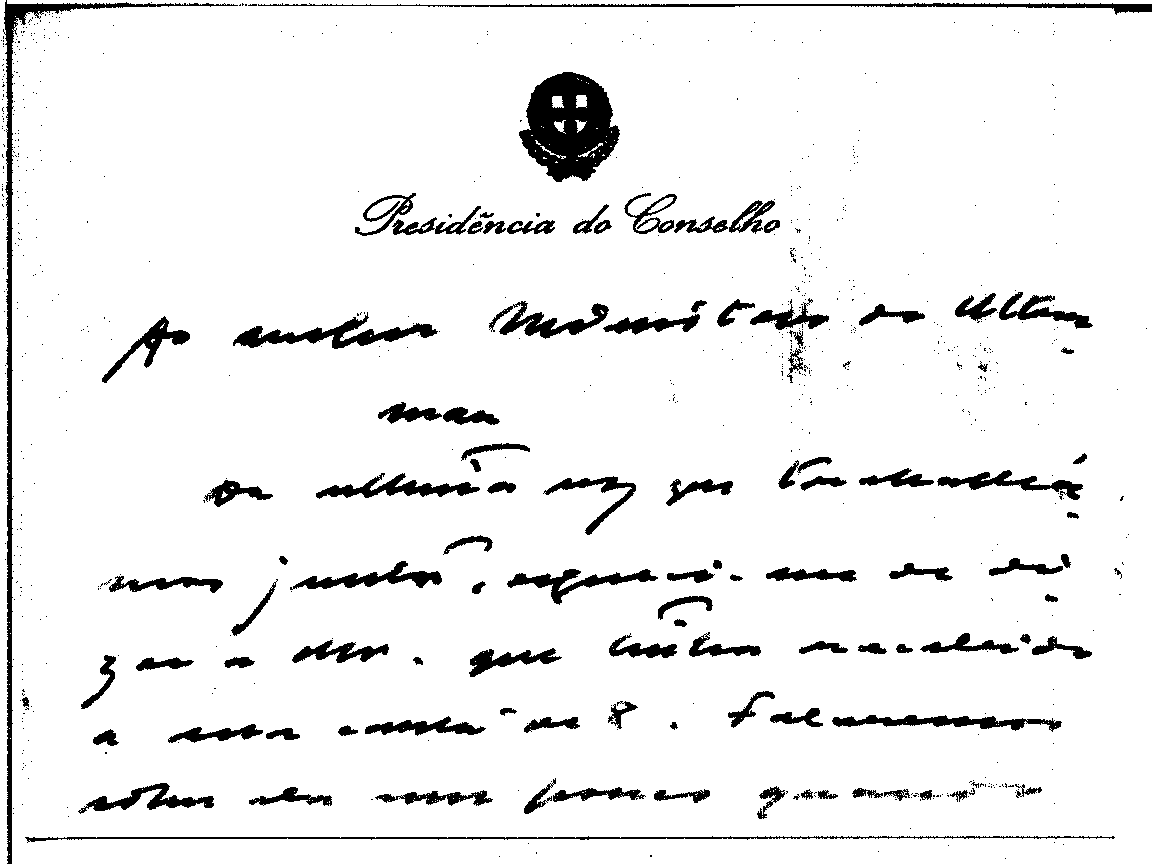 Presidência do Conselho
Ao senhor Ministro do Ultra-
mar
Da última vez que trabalhá-
mos juntos, esqueci-me de di-
zer a V. que tinha recebido
a sua carta de 8. Falaremos
sôbre ela um pouco quando